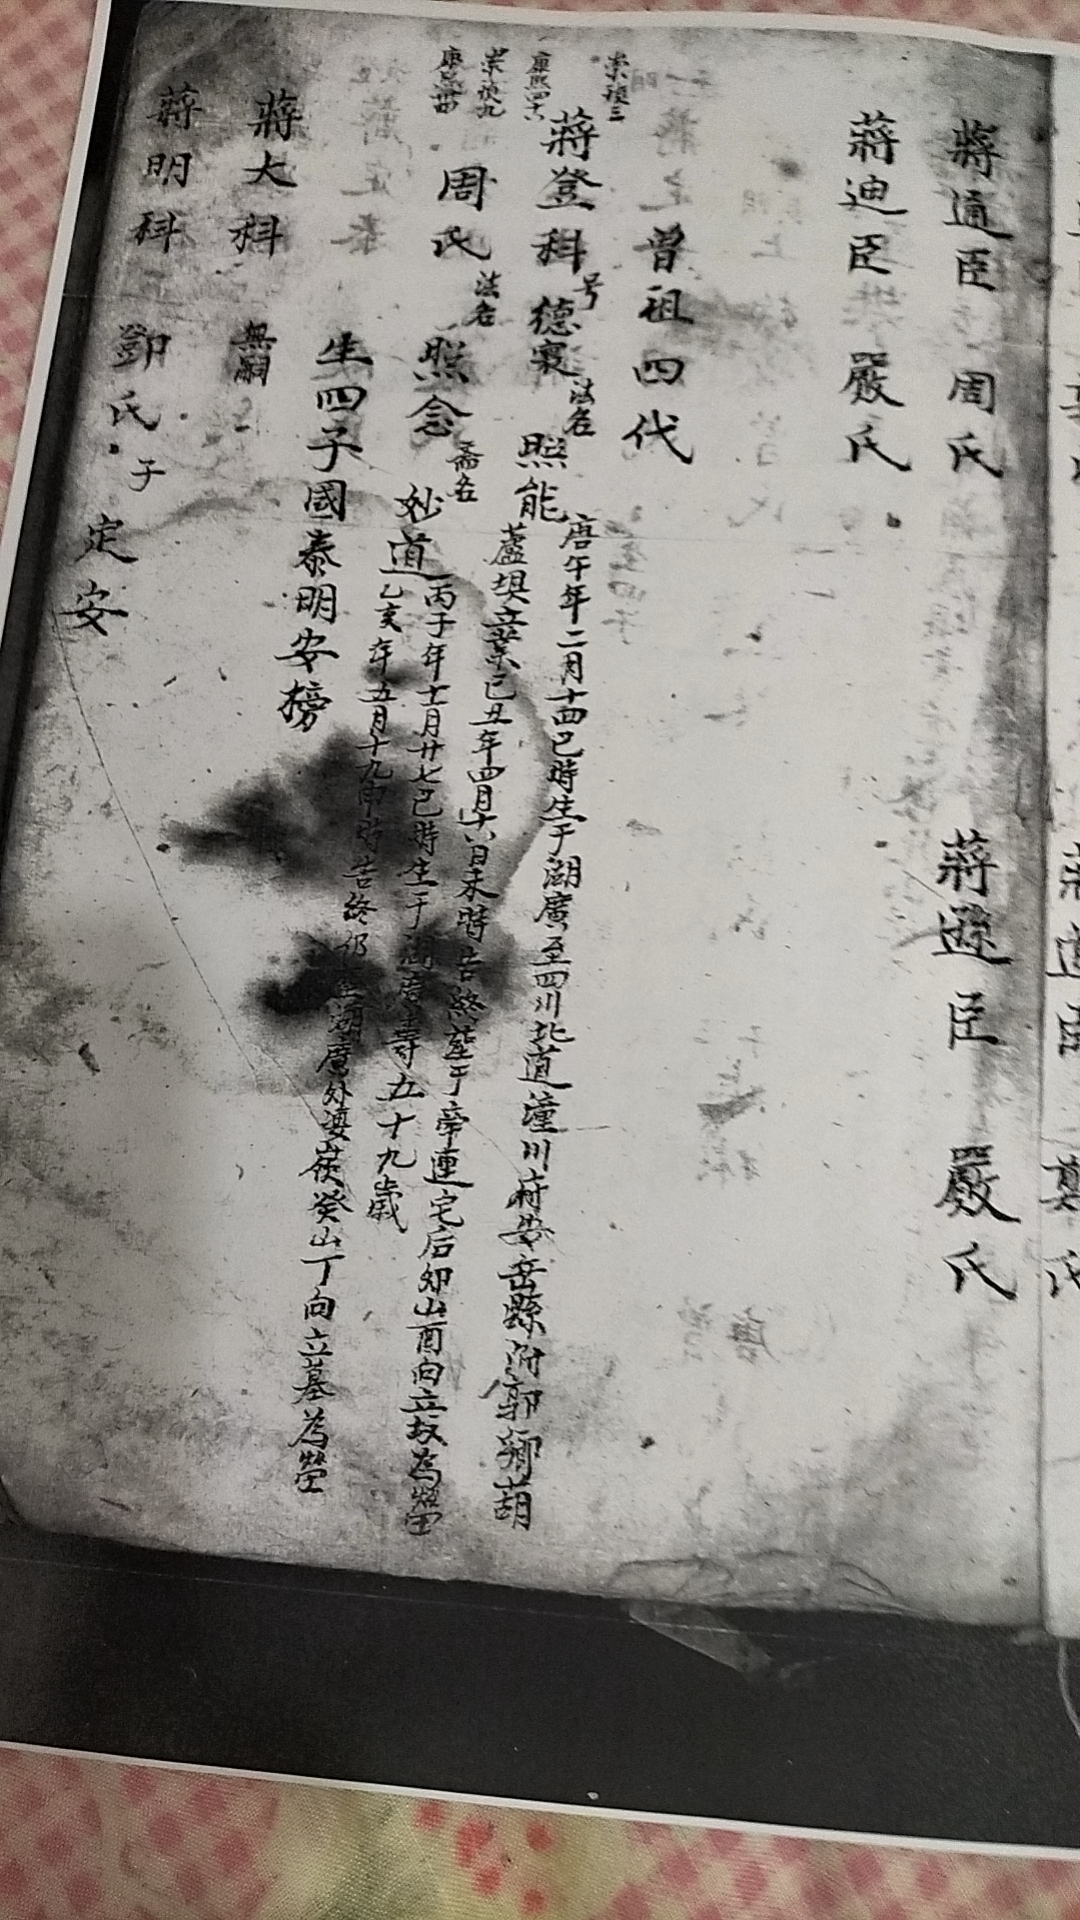 蔣通臣 周氏 蔣遜臣 嚴氏
蔣迪臣 嚴氏
曾祖四代
崇禎三
康熙四八
蔣登科 号 德㐮 法名 照能
庚午年二月十四巳時生于湖廣至四川北道潼川府安岳縣附郭鄉葫
蘆埧立業己丑年四月十六日未時告終塟于牽連宅后卯山酉向立坟為塋
崇禎九
周氏 法名 照念 斋名 妙道
丙子年十一月廿七巳時生于湖廣壽五十九歲
乙亥年五月十九申時告終仍湖廣外婆嶺癸山丁向立墓為塋
生四子國泰明安榜
蔣大科 無嗣
蔣明科 鄧氏 子 定安